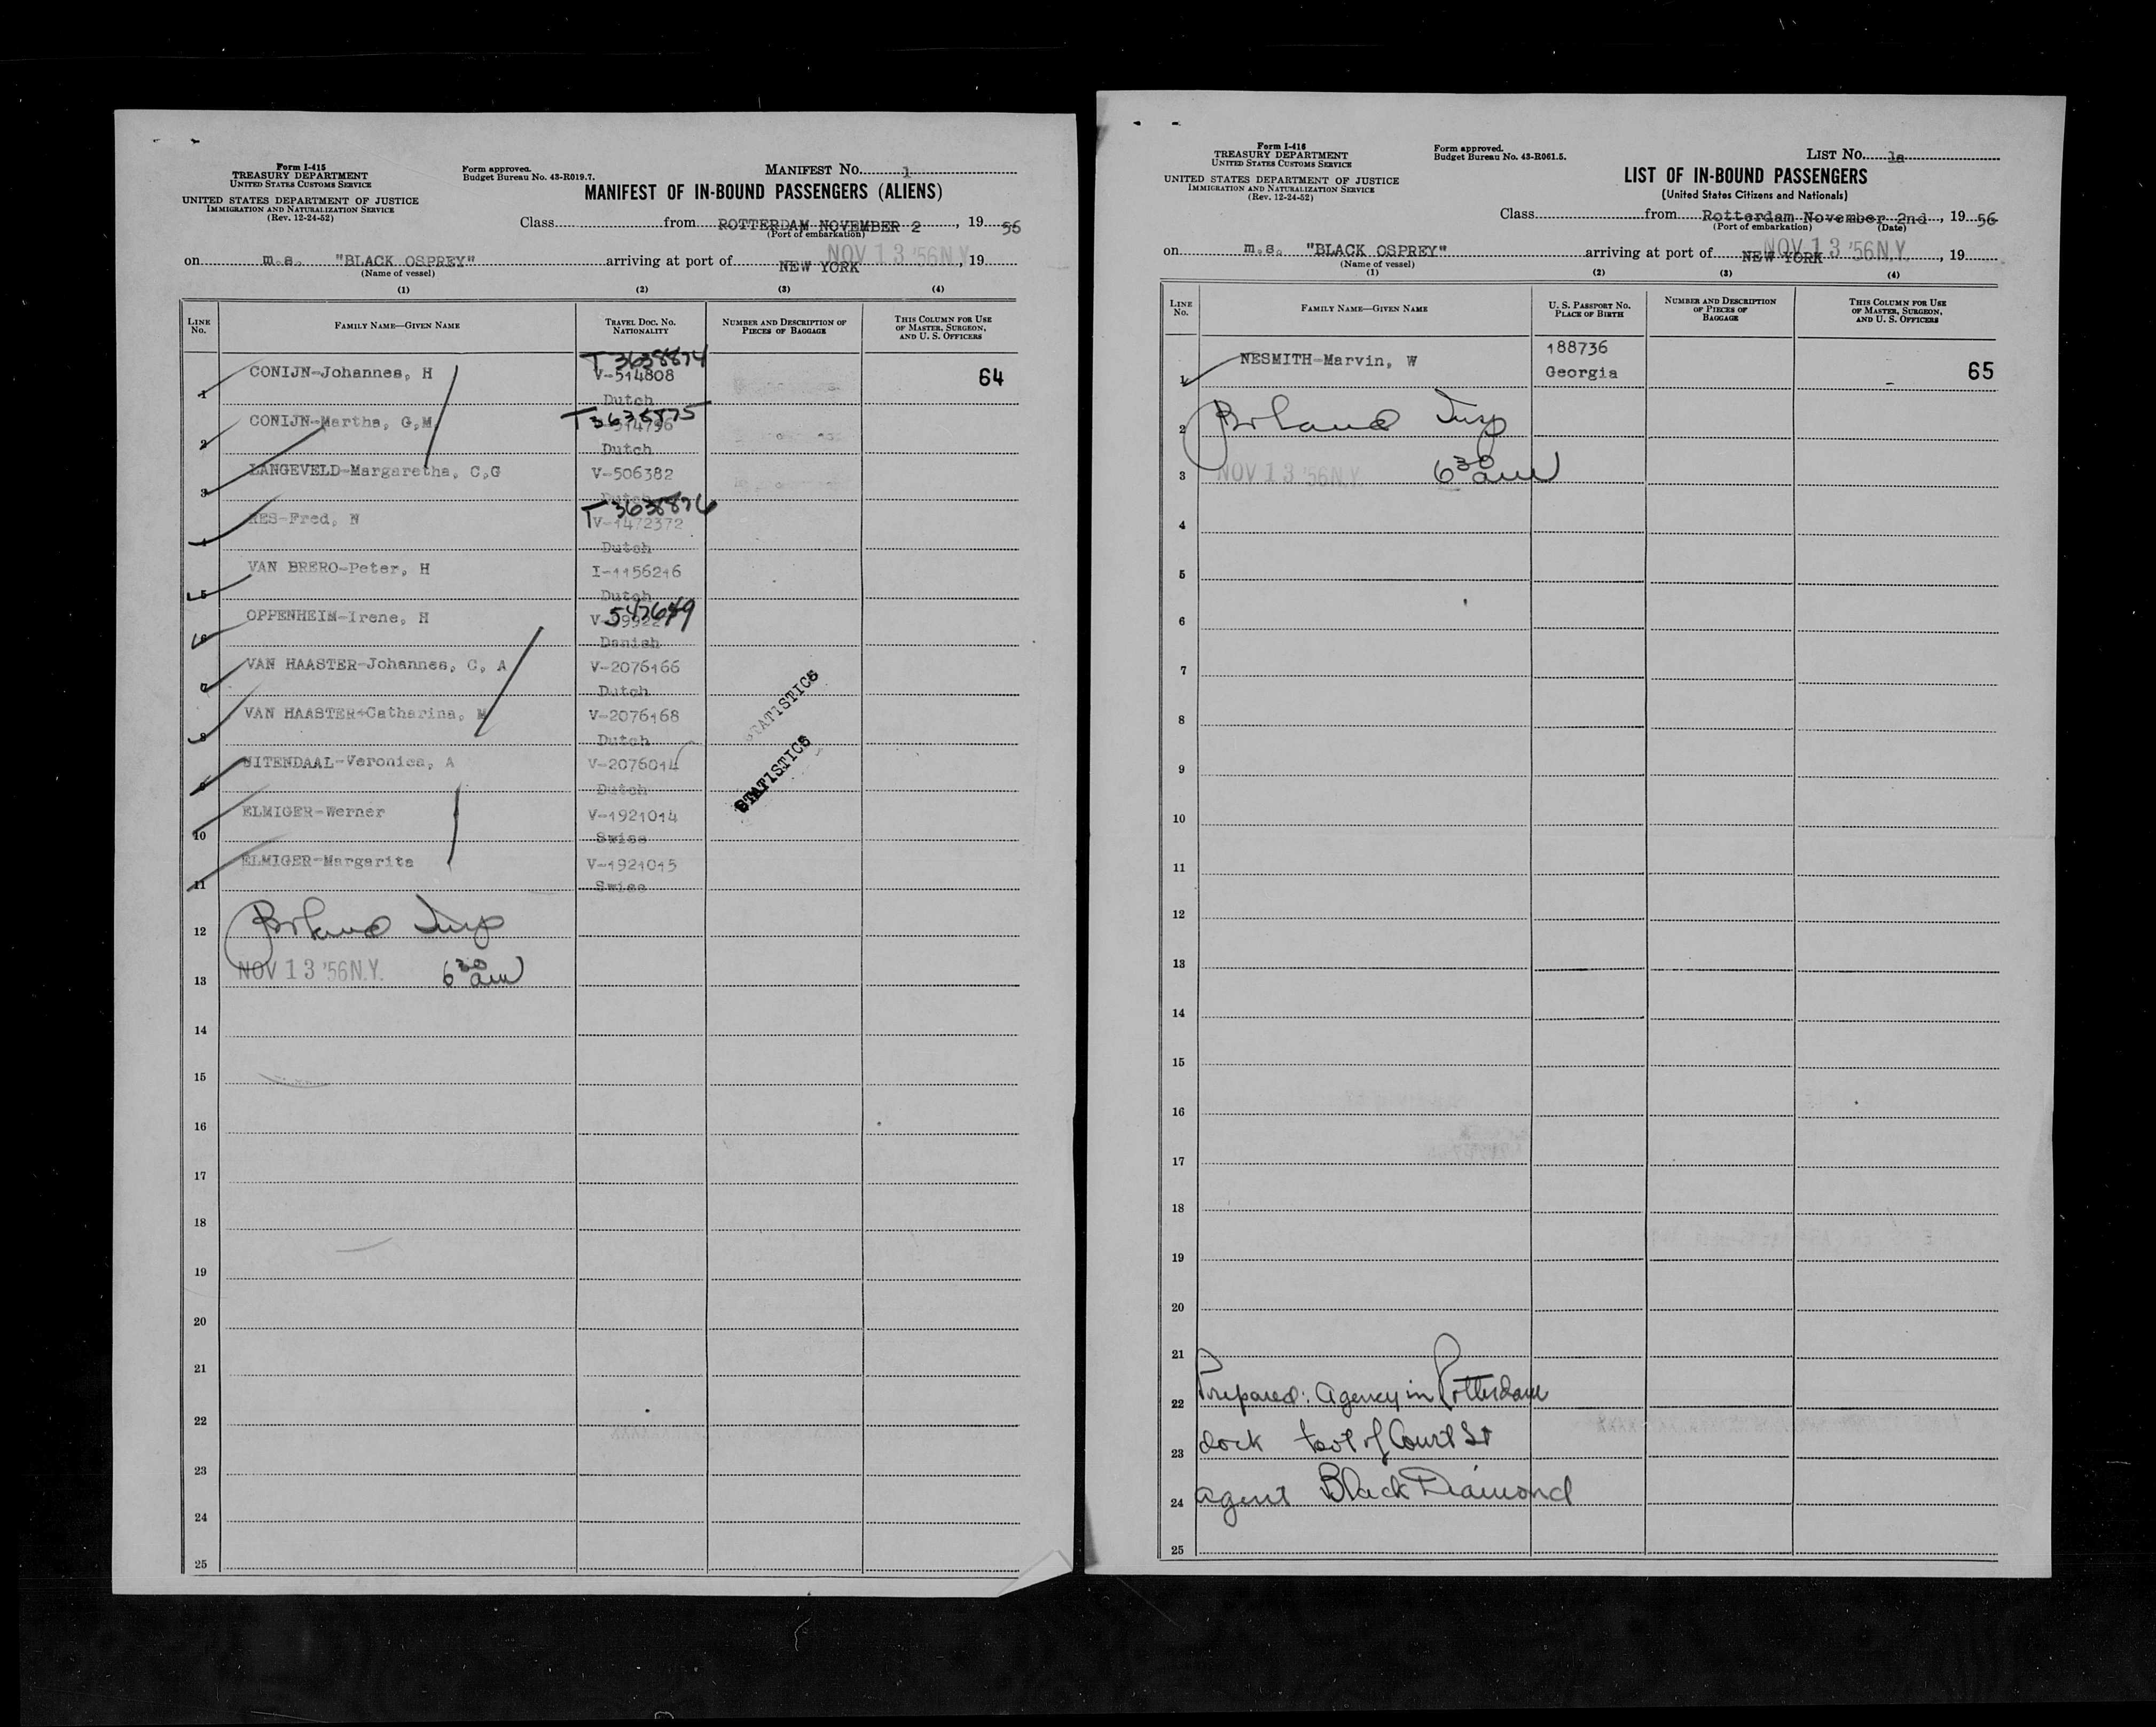 Form I-415
TREASURY DEPARTMENT
UNITED STATES CUSTOMS SERVICE
UNITED STATES DEPARTMENT OF JUSTICE
IMMIGRATION AND NATURALIZATION SERVICE
(Rev. 12-24-52)
Form approved.
Budget Bureau No. 43-R019.7.
MANIFEST No. 1
MANIFEST OF IN-BOUND PASSENGERS (ALIENS)
Class from ROTTERDAM NOVEMBER 2, 19 56
(Port of embarkation)
on m.s. "BLACK OSPREY" arriving at port of NEW YORK NOV 13 '56 N.Y., 19
(Name of vessel)
(1) (2) (3) (4)
LINE No. FAMILY NAME—GIVEN NAME TRAVEL DOC. No. NATIONALITY NUMBER AND DESCRIPTION OF PIECES OF BAGGAGE THIS COLUMN FOR USE OF MASTER, SURGEON, AND U. S. OFFICERS
T 3638874
1 CONIJN-Johannes, H V-514808 64
Dutch
T 3638875
2 CONIJN-Martha, G,M. 514796
Dutch
3 LANGEVELD-Margaretha, C,G V-506382
Dutch
T 3638876
4 RES-Fred, W V-1472372
Dutch
5 VAN BRERO-Peter, H I-1156216
Dutch
6 OPPENHEIM-Irene, H V-
Danish
7 VAN HAASTER-Johannes, C, A V-2076166
Dutch
8 VAN HAASTER-Catharina, M V-2076168
Dutch
9 UITENDAAL-Veronica, A V-2076014
Dutch
10 ELMIGER-Werner V-1921014
Swiss
11 ELMIGER-Margarita V-1921015
Swiss
STATISTICS
STATISTICS
12 Borland Insp
13 NOV 13 '56 N.Y. 6 30 am
14
15
16
17
18
19
20
21
22
23
24
25
Form I-416
TREASURY DEPARTMENT
UNITED STATES CUSTOMS SERVICE
UNITED STATES DEPARTMENT OF JUSTICE
IMMIGRATION AND NATURALIZATION SERVICE
(Rev. 12-24-52)
Form approved.
Budget Bureau No. 43-R061.5.
LIST No. 1a
LIST OF IN-BOUND PASSENGERS
(United States Citizens and Nationals)
Class from Rotterdam November 2nd, 19 56
(Port of embarkation) (Date)
on m.s. "BLACK OSPREY" arriving at port of NEW YORK NOV 13 '56 N.Y., 19
(Name of vessel)
(1) (2) (3) (4)
LINE No. FAMILY NAME—GIVEN NAME U. S. PASSPORT No. PLACE OF BIRTH NUMBER AND DESCRIPTION OF PIECES OF BAGGAGE THIS COLUMN FOR USE OF MASTER, SURGEON, AND U. S. OFFICERS
1 NESMITH-Marvin, W 188736 65
Georgia
2 Borland Insp
3 NOV 13 '56 N.Y. 6 30 am
4
5
6
7
8
9
10
11
12
13
14
15
16
17
18
19
20
21
22 Prepared: Agency in Rotterdam
23 dock foot of Court St
24 agent Black Diamond
25